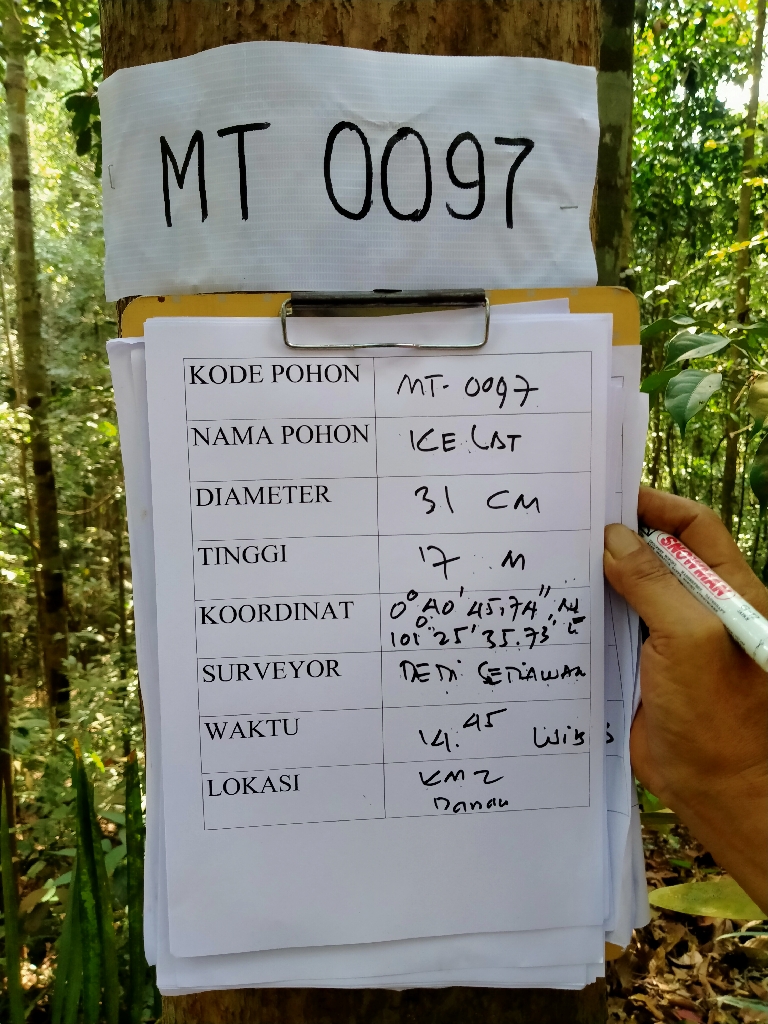 MT 0097
KODE POHON MT-0097
NAMA POHON KELAT
DIAMETER 31 CM
TINGGI 17 M
KOORDINAT 0° 40' 45,74" N
101° 25' 35.73" E
SURVEYOR DEDI SETIAWAN
WAKTU 14.45 WIB
LOKASI KM 2
Danau
SNOWMAN